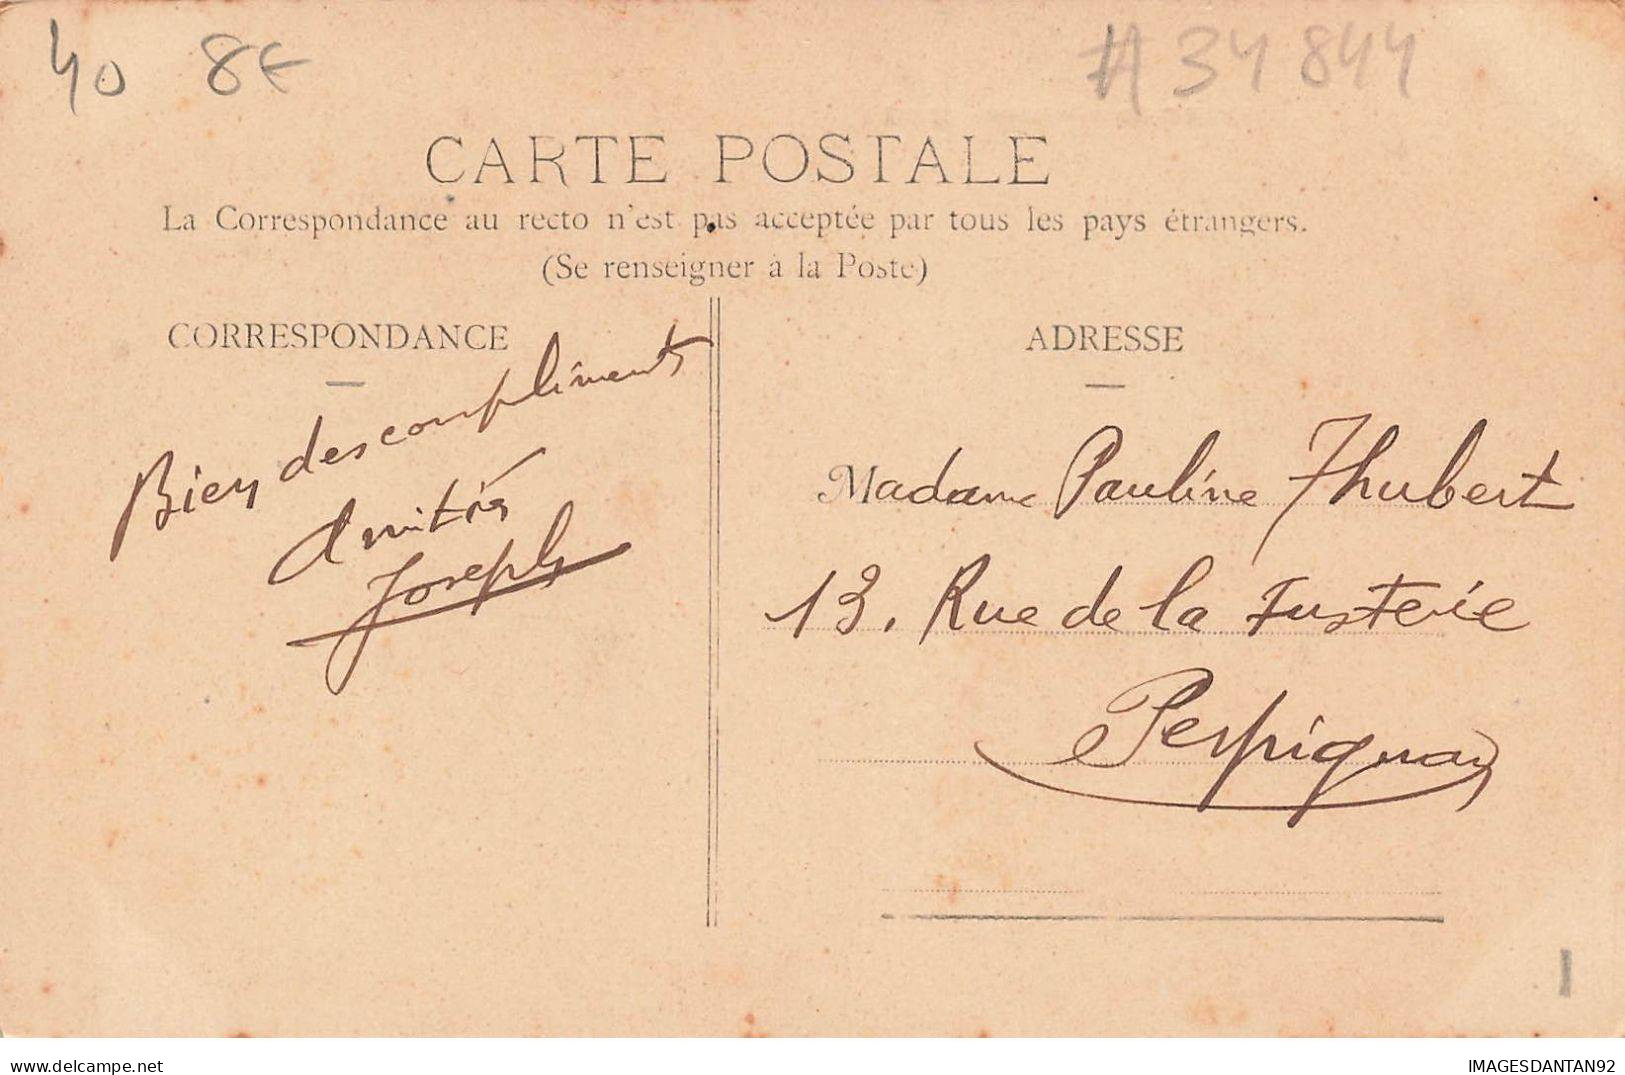 40 8€
#34844
CARTE POSTALE
La Correspondance au recto n'est pas acceptée par tous les pays étrangers.
(Se renseigner à la Poste)
CORRESPONDANCE
Bien des compliments
Amitiés
Joseph
ADRESSE
Madame Pauline Thubert
13, Rue de la Fusterie
Perpignan
1
delcampe.net
IMAGESDANTAN92